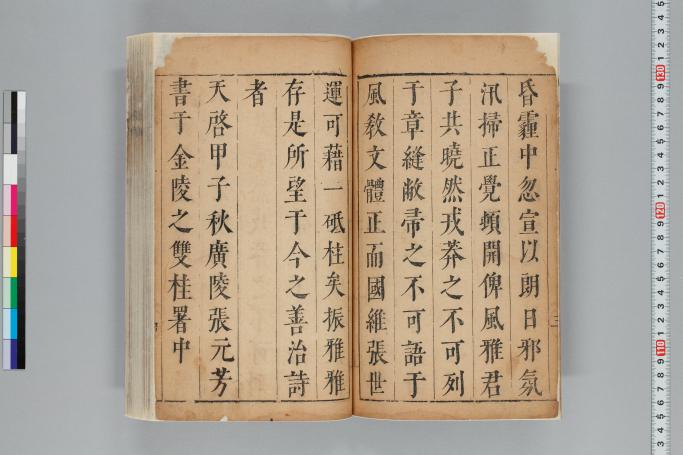 昏霾中忽宣以朗日邪氛
汛掃正覺頓開俾風雅君
子共曉然戎莽之不可列
于章縫敝帚之不可語于
風教文體正而國維張世
運可藉一砥柱矣振雅雅
存是所望于今之善治詩
者
天啓甲子秋廣陵張元芳
書于金陵之雙桂署中
三